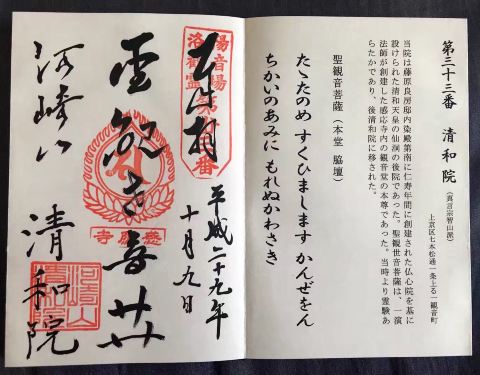 第三十三番　清和院（真言宗智山派）
上京区七本松通一条上る一観音町
当院は藤原良房邸内染殿第南に仁寿年間に創建された仏心院を基に
設けられた清和天皇の仙洞の後院であった。聖観世音菩薩は、一演
法師が創建した感応寺内の観音堂の本尊であった。当時より霊験あ
らたかであり、後清和院に移された。
聖観音菩薩（本堂 脇壇）
たゝたのめ すくひまします かんぜをん
ちかいのあみに もれぬかわさき
奉拝
洛陽
観音
霊場
平成二十九年
十月九日
聖観世音
感應寺
河崎山 清和院